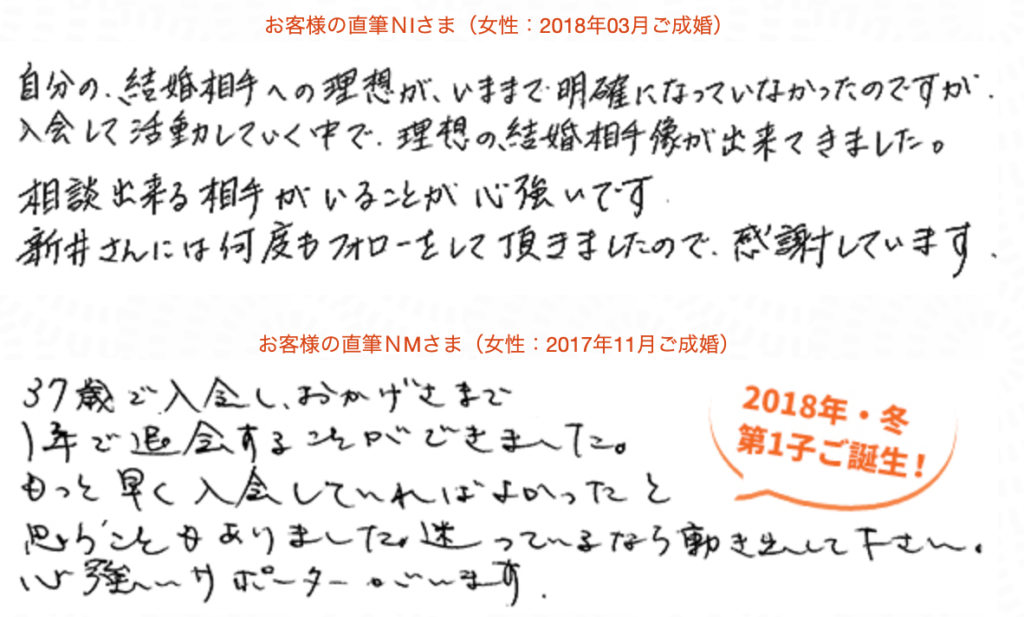 お客様の直筆NIさま（女性：2018年03月ご成婚）
自分の、結婚相手への理想が、いままで明確になっていなかったのですが、
入会して活動していく中で、理想の結婚相手像が出来てきました。
相談出来る相手がいることが心強いです
新井さんには何度もフォローをして頂きましたので、感謝しています.
お客様の直筆NMさま（女性：2017年11月ご成婚）
37歳で入会し、おかげさまで
1年で退会することができました。
もっと早く入会していればよかったと
思うこともありました。迷っているなら動き出して下さい。
心強いサポーターがいます.
2018年・冬
第1子ご誕生！